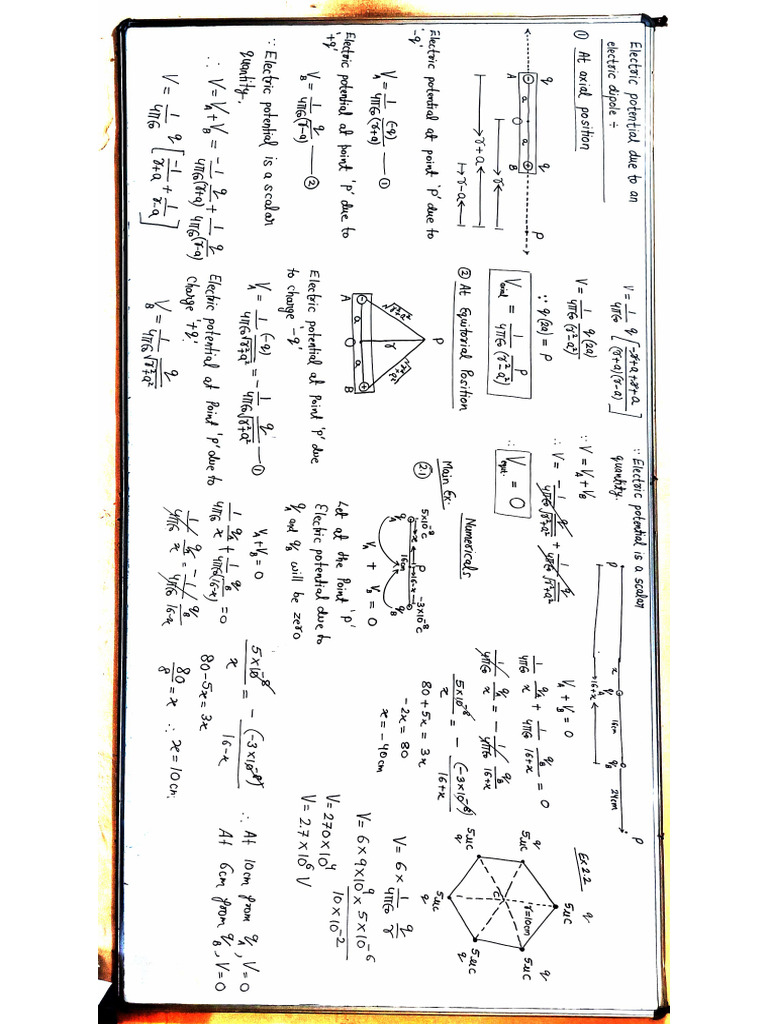 Electric potential due to an
electric dipole ÷
① At axial position
q q
A a O a B P
r
r+a
r-a
Electric potential at point 'P' due to
-q'
V_A = 1/4π∈₀ (-q)/(r+a) — ①
Electric potential at point 'P' due to
'+q'
V_B = 1/4π∈₀ q/(r-a) — ②
∵ Electric potential is a scalar
quantity.
∴ V = V_A + V_B = -1/4π∈₀ q/(r+a) + 1/4π∈₀ q/(r-a)
V = 1/4π∈₀ q [-1/r+a + 1/r-a]
V = 1/4π∈₀ q [-r+a+r+a/(r+a)(r-a)]
V = 1/4π∈₀ q(2a)/(r²-a²)
∵ q(2a) = P
V_axial = 1/4π∈₀ P/(r²-a²)
② At Equitorial Position
P
√r²+a² r √r²+a²
A a O a B
Electric potential at Point 'P' due
to charge '-q'
V_A = 1/4π∈₀ (-q)/√r²+a² = -1/4π∈₀ q/√r²+a² — ①
Electric potential at Point 'P' due to
charge '+q'
V_B = 1/4π∈₀ q/√r²+a²
∵ Electric potential is a scalar
quantity.
∴ V = V_A + V_B
∴ V = -1/4π∈₀ q/√r²+a² + 1/4π∈₀ q/√r²+a²
∴ V_equt. = 0
Numericals
Main Ex:
2.1
5×10⁻⁸C P -3×10⁻⁸C
x 16-x
q_A 16cm q_B
V_A + V_B = 0
Let at the Point 'P'
Electric potential due to
q_A and q_B will be zero
V_A+V_B = 0
1/4π∈₀ q_A/x + 1/4π∈₀ q_B/(16-x) = 0
1/4π∈₀ q_A/x = -1/4π∈₀ q_B/16-x
5×10⁻⁸/x = -(-3×10⁻⁸)/16-x
80-5x = 3x
80/8 = x ∴ x = 10cm.
P x q_A 16cm q_B 24cm P
16+x
V_A + V_B = 0
1/4π∈₀ q_A/x + 1/4π∈₀ q_B/16+x = 0
1/4π∈₀ q_A/x = -1/4π∈₀ q_B/16+x
5×10⁻⁸/x = -(-3×10⁻⁸)/16+x
80+5x = 3x
-2x = 80
x = -40cm
∴ At 10cm from q_A, V=0
At 6cm from q_B, V=0
Ex 2.2
q 5μC
q 5μC
q 5μC
q 5μC
q 5μC
q 5μC
r=10cm
C
V = 6 × 1/4π∈₀ q/r
V = 6×9×10⁹×5×10⁻⁶/10×10⁻²
V = 270×10⁴
V = 2.7×10⁶ V